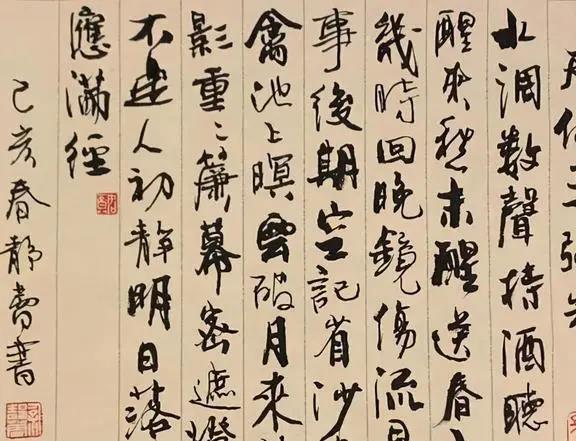 水調數聲持酒聽
醒來愁未醒送春
幾時回晚鏡傷流
事後期空記省沙
禽池上暝雲破月來
影重〻簾幕密遮燈
不定人初靜明日落
應滿徑
己亥春靜書